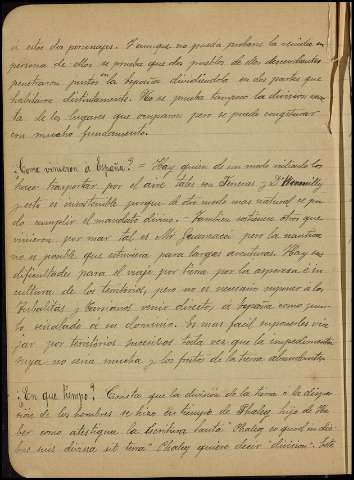 a estos dos personajes. Y aunque no pueda probarse la venida en
persona de ellos se prueba que dos pueblos de dos descendientes
penetraron juntos en la España dividiéndola en dos partes que
habitaron distintamente. No se prueba tampoco la división
de los lugares que ocuparon pero se puede conjeturar
con mucho fundamento.
¿Como vinieron á España? = Hay quien de un modo ridiculo los
hace trasportar por el aire tales son Teneras y
y esto es insostenible porque de otro modo mas natural se pu-
do cumplir el mandato divino. - Tambien sostienen otros que
vinieron por mar tal es Mr. pero la nautica
no es posible que estuviera para largas aventuras. Hay sus
dificultades para el viaje por tierra por la aspereza é in-
cultura de los territorios, pero no es necesario suponer á los
Tubalitas y venir directo á España como pun-
to señalado á su dominio. Es mas facil suponerles via-
jar por territorios toda vez que la impedimenta
suya no seria mucha y los frutos de la tierra abundantes.
¿En que tiempo? Consta que la división de la tierra ó la disper-
sión de los hombres se hizo en tiempo de Phaleg hijo de He-
ber como atestigua la Escritura santa "Phaleg eo quod in die-
bus ejus divisa sit terra" Phaleg quiere decir "division". Este